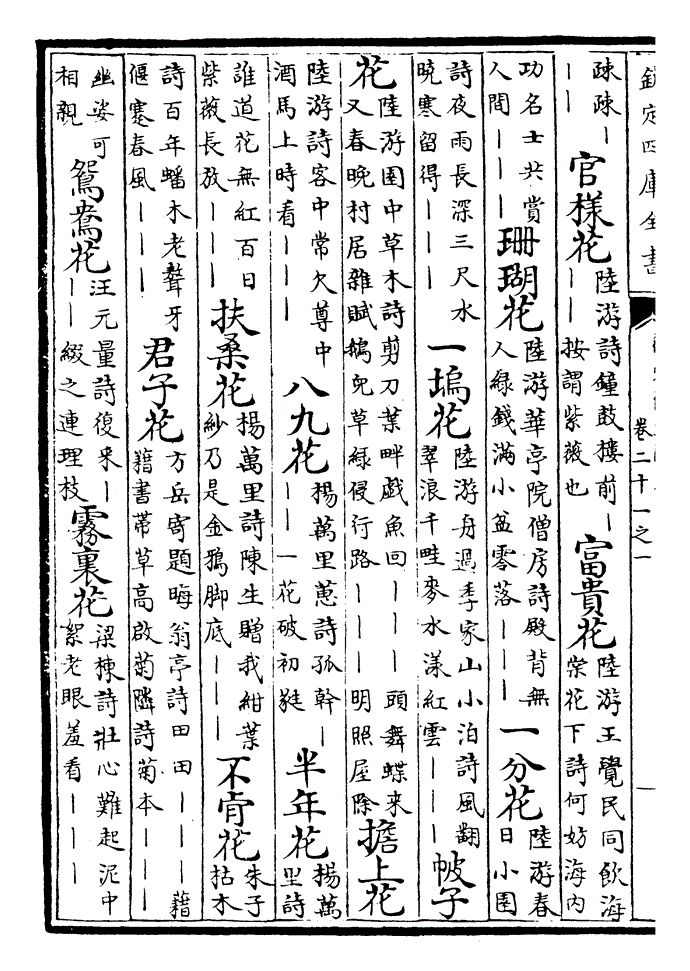 欽定四庫全書
卷二十一之一
疎疎｜｜｜官樣花陸游詩鐘鼓樓前｜｜｜按謂紫薇也富貴花陸游王覺民同飲海棠花下詩何妨海內
功名士共賞人間｜｜｜珊瑚花陸游華亭院僧房詩殿背無人綠錢滿小盆零落｜｜｜一分花陸游春日小園
詩夜雨長深三尺水曉寒留得｜｜｜一塢花陸游舟過季家山小泊詩風翻翠浪千畦麥水漾紅雲｜｜｜帔子
花陸游園中草木詩剪刀葉畔戲魚回｜｜｜頭舞蝶來又春晚村居雜賦鵝兒草綠侵行路｜｜｜明照屋除擔上花
陸游詩客中常欠尊中酒馬上時看｜｜｜八九花楊萬里蔥詩孤幹｜｜｜一花破初甤半年花楊萬里詩
誰道花無紅百日紫薇長放｜｜｜扶桑花楊萬里詩陳生贈我紺葉紗乃是金鴉脚底｜｜｜不肯花朱子枯木
詩百年蟠木老聱牙偃蹇春風｜｜｜君子花方岳寄題晦翁亭詩田田｜｜｜藉藉書帶草高啟菊隣詩菊本｜｜｜
幽姿可相親鴛鴦花汪元量詩復來｜｜｜綴之連理枝霧裏花梁棟詩壯心難起泥中絮老眼羞看｜｜｜